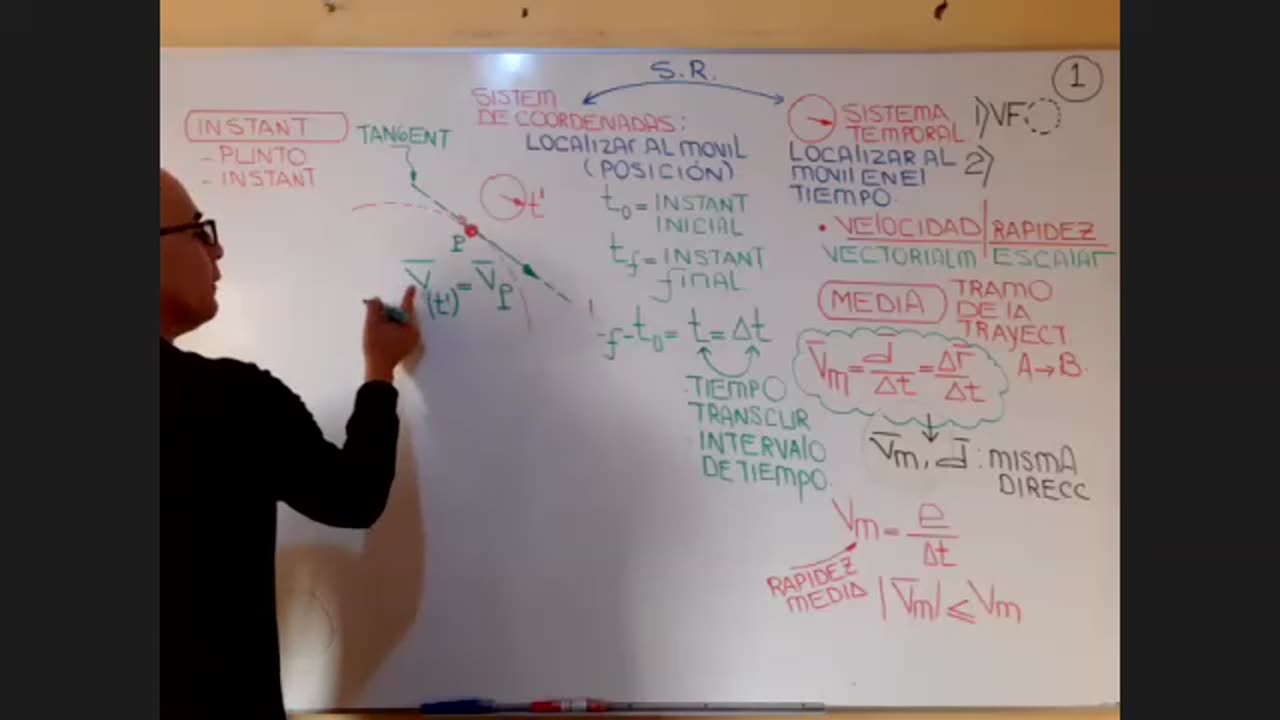 S.R.
1
INSTANT
- PUNTO
- INSTANT
TANGENT
t'
P
V̅(t') = V̅P
SISTEM
DE COORDENADAS:
LOCALIZAR AL MOVIL
(POSICIÓN)
t₀ = INSTANT
INICIAL
tf = INSTANT
FINAL
f - t₀ = t = Δt
TIEMPO
TRANSCUR
INTERVALO
DE TIEMPO.
SISTEMA
TEMPORAL
LOCALIZAR AL
MOVIL EN El
TIEMPO.
1) VF
2)
• VELOCIDAD | RAPIDEZ
VECTORIALM | ESCALAR
MEDIA
TRAMO
DE LA
TRAYECT
A→B.
V̅m = d̅/Δt = Δr̅/Δt
V̅m, d̅ : MISMA
DIRECC
Vm = e/Δt
RAPIDEZ
MEDIA
|V̅m| ≤ Vm